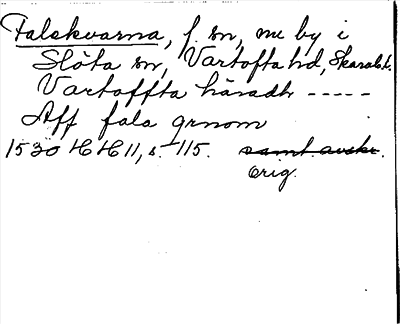 Falekvarna, f. sn, nu by i
Slöta sn, Vartofta hd, Skarab. l.
Vartoffta häradh -----
Aff fala qrnom
1530 HH 11, s. 115. samt. avskr.
orig.